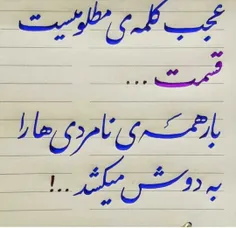 عجب کلمه‌ی مظلومیست
قسمت ...
بار همه‌ی نامردی ها را
به دوش میکشد ..!